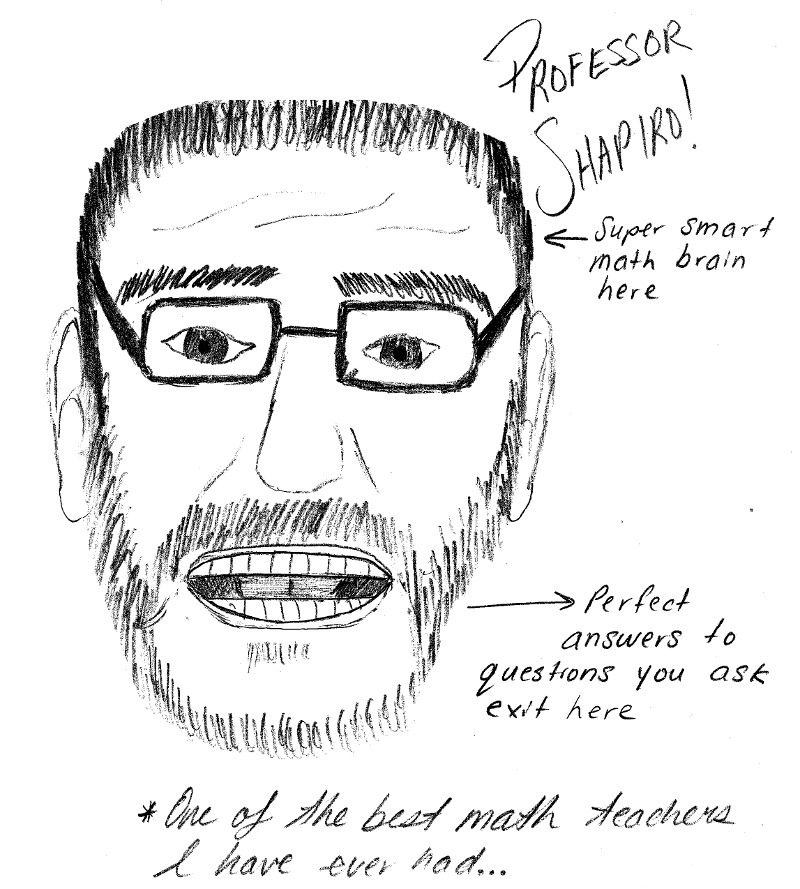 PROFESSOR
SHAPIRO!
Super smart
math brain
here
Perfect
answers to
questions you ask
exit here
* One of the best math teachers
I have ever had...